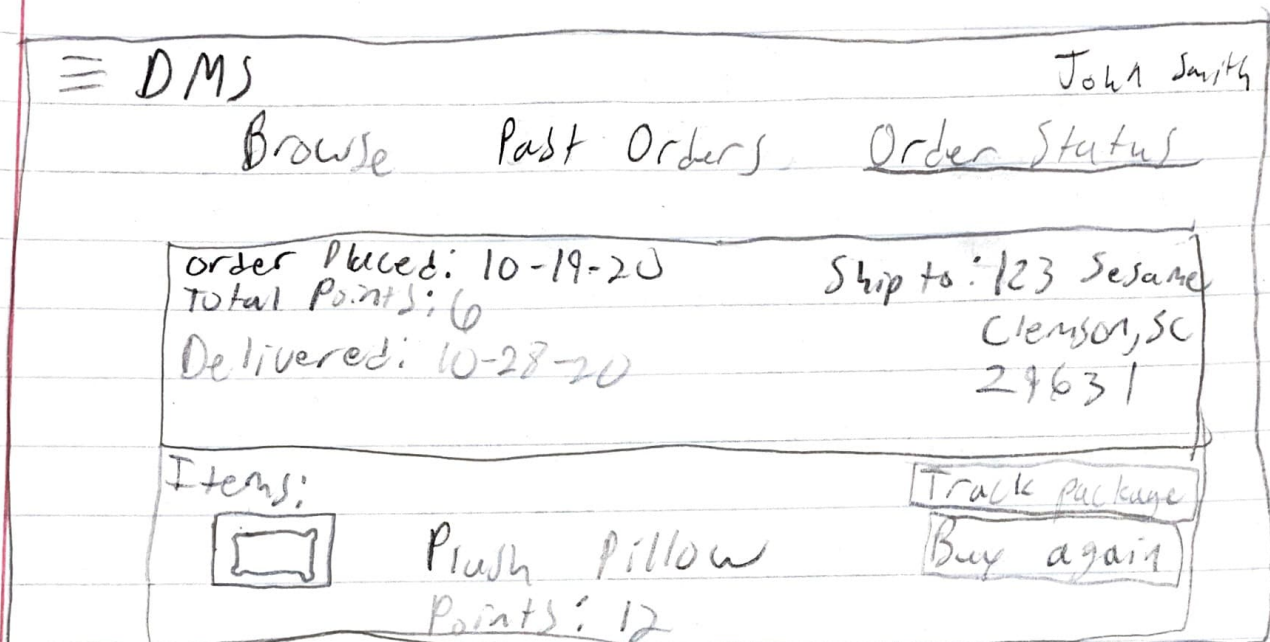 DMS John Smith
Browse Past Orders Order Status
Order Placed: 10-19-20
Total Points: 6
Delivered: 10-28-20
Ship to: 123 Sesame
Clemson, SC
29631
Items:
Track package
Plush Pillow
Buy again
Points: 12